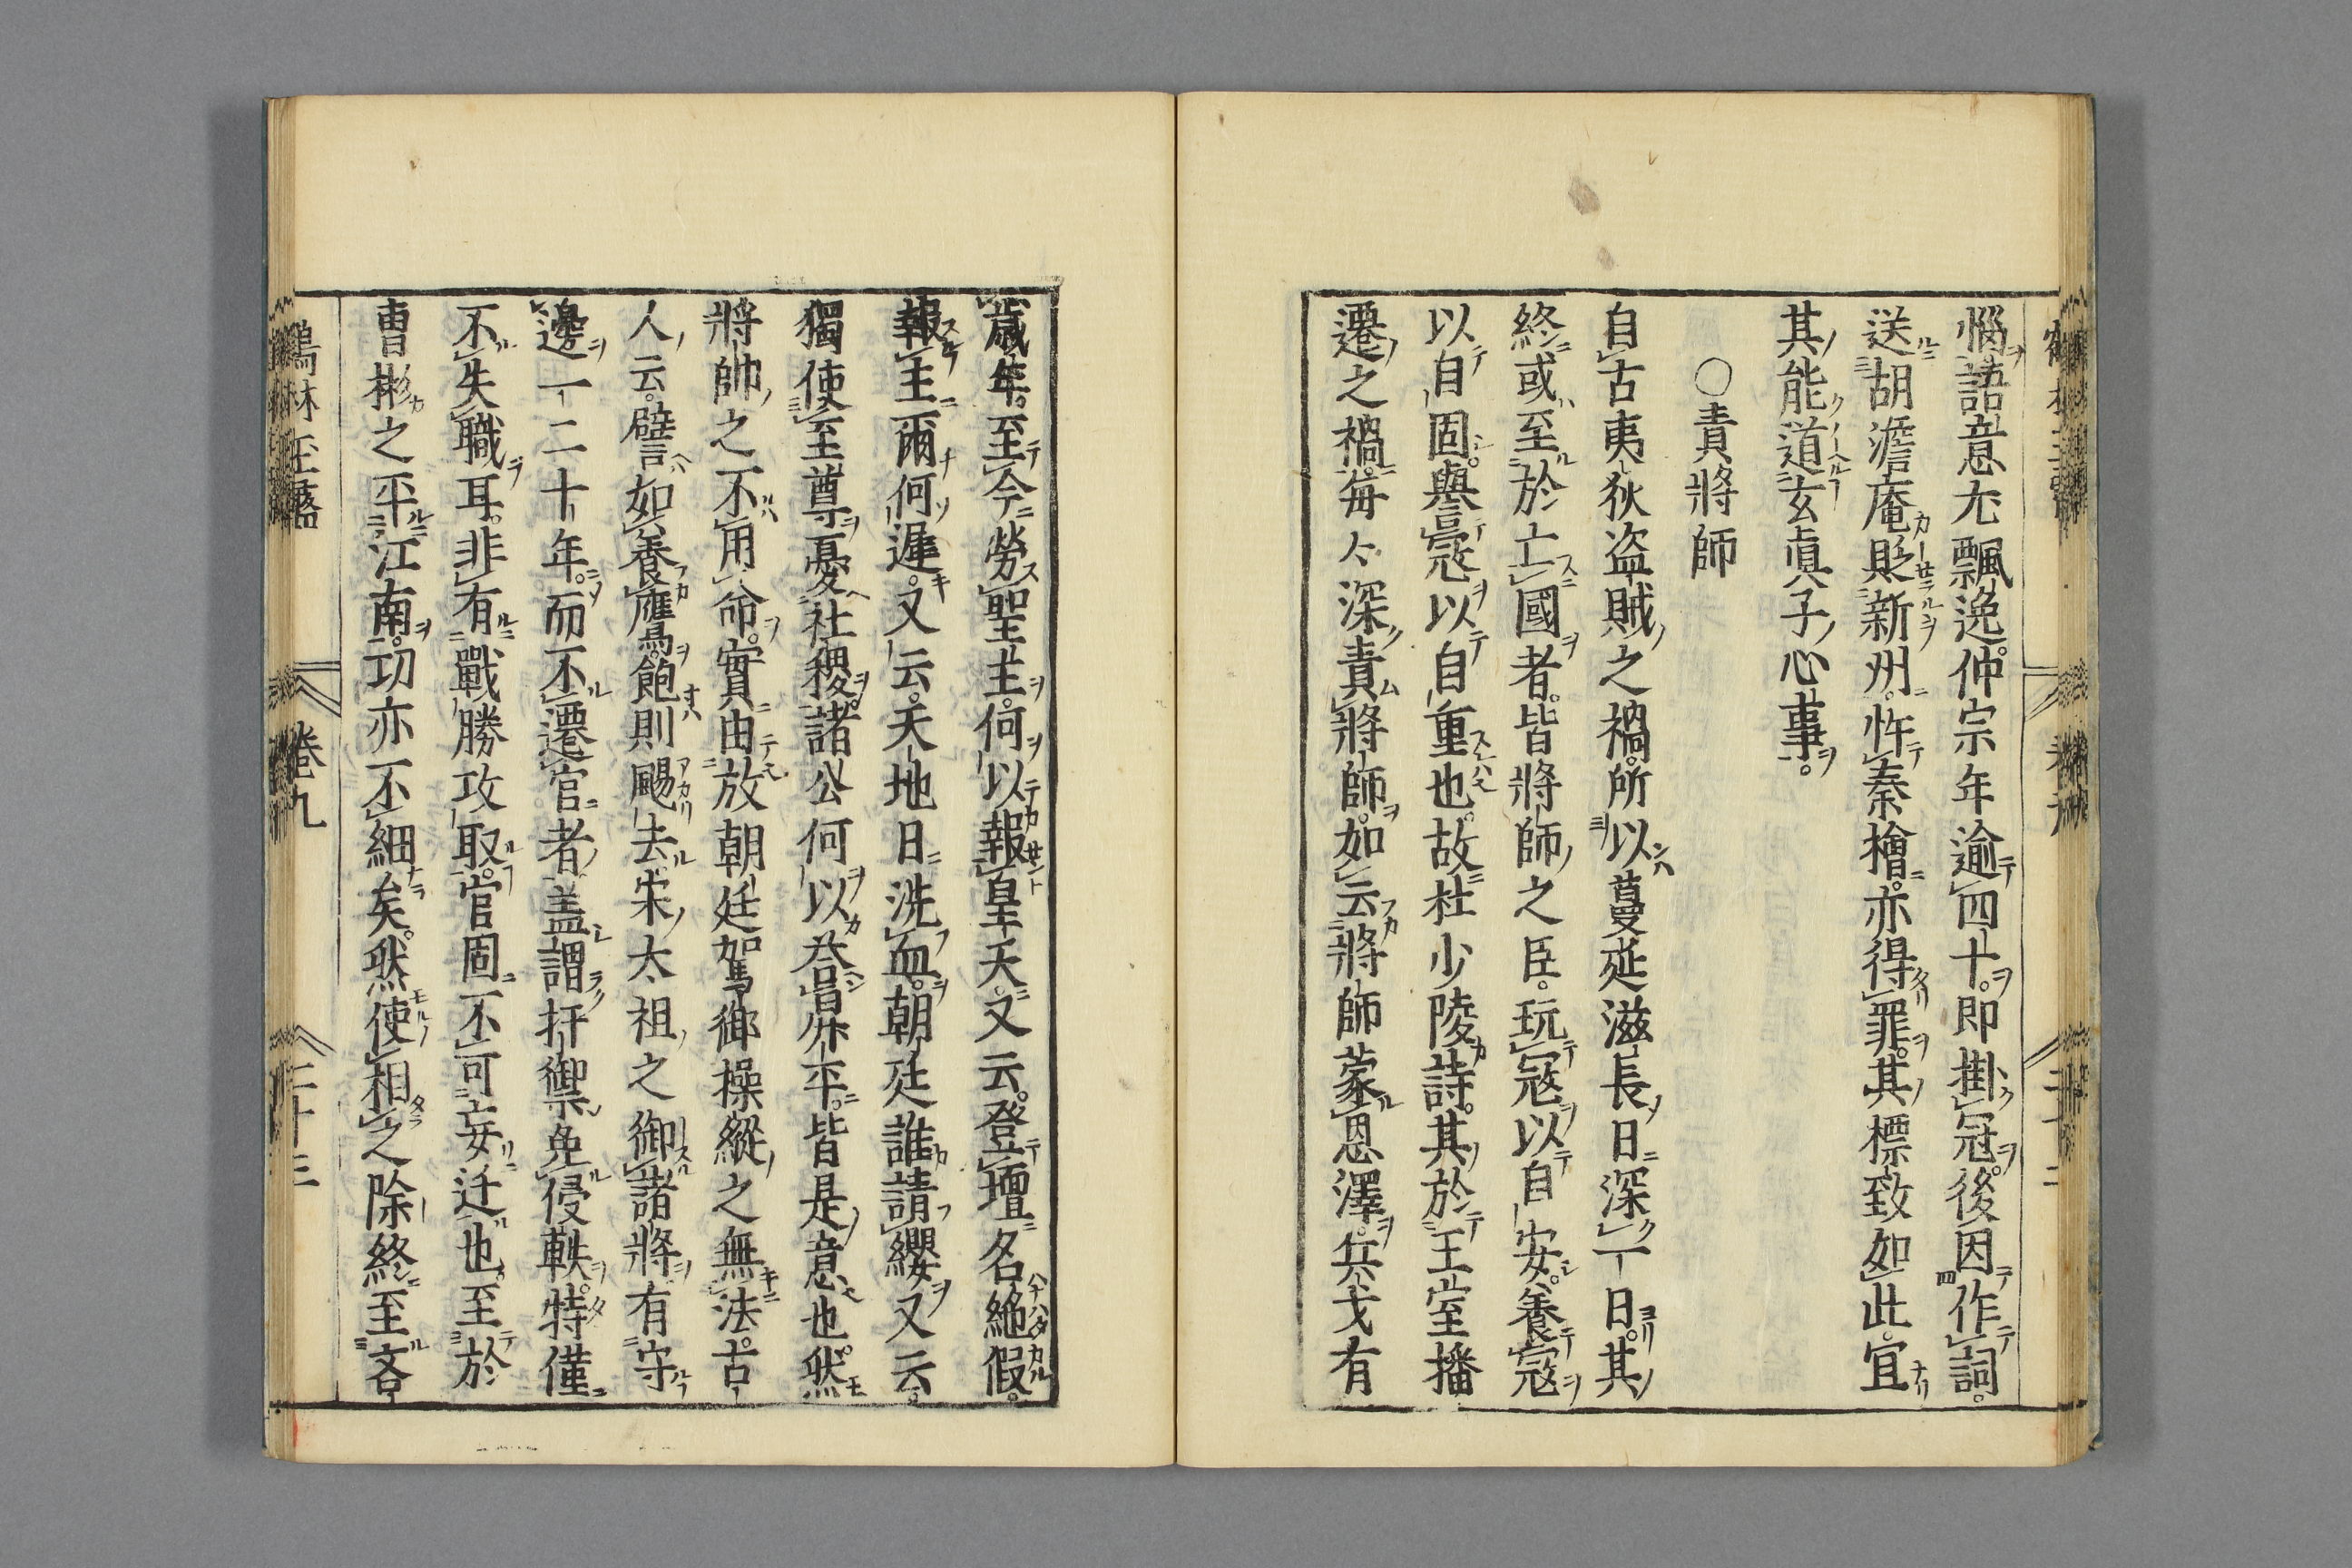 惱語意尤飄逸仲宗年逾四十即掛冠後因作詞
送胡澹庵貶新州忤秦檜亦得罪其標致如此宜
其能道玄眞子心事
○責將師
自古夷狄盗賊之禍所以蔓延滋長日深一日其
終或至於亡國者皆將師之臣玩寇以自安養寇
以自固譽寇以自重也故杜少陵詩其於王室播
遷之禍每々深責將師如云將師蒙恩澤兵戈有
歳年至今勞聖主何以報皇天又云登壇名絶假
報主爾何遲又云天地日洗血朝廷誰請纓又云
獨使至尊憂社稷諸公何以答昇平皆是意也然
將帥之不用命實由放朝廷駕御操縱之無法古
人云譬如養鷹飽則颺去宋太祖之御諸將有守
邊一二十年而不遷官者盖謂扞禦免侵軼特僅
不失職耳非有戰勝攻取官固不可妄迁也至於
曹彬之平江南功亦不細矣然使相之除終至吝
鶴林玉露　卷九　二十三